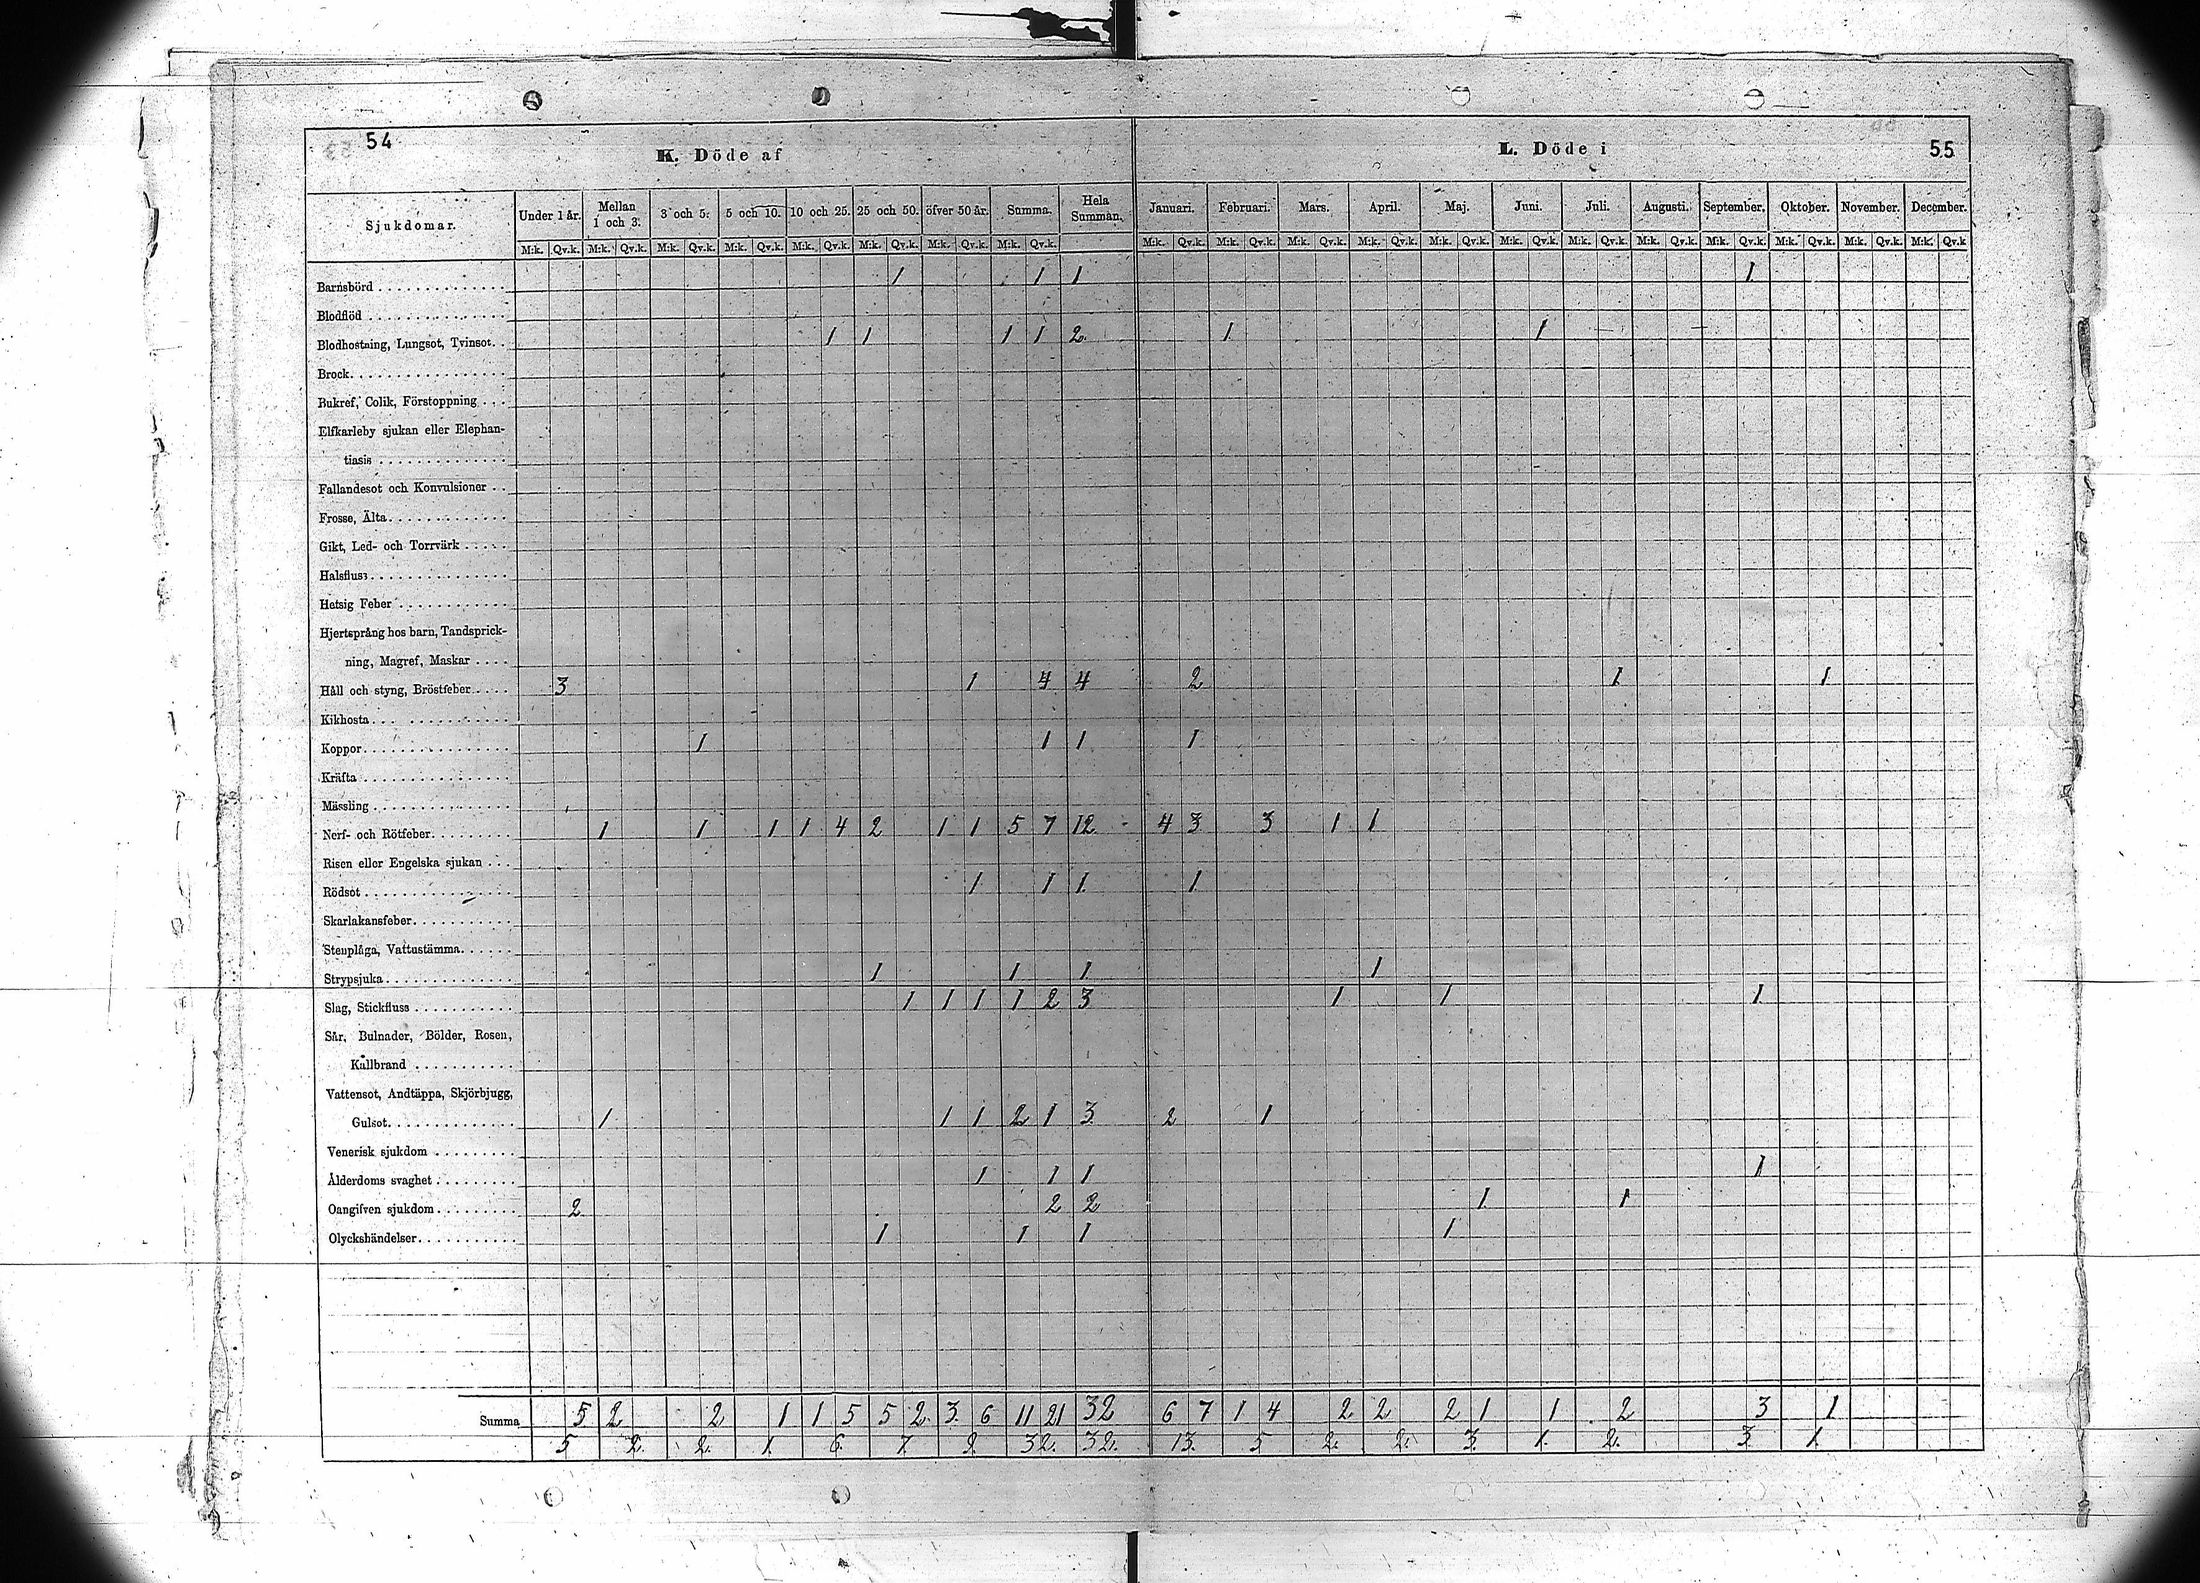 54
K. Döde af
L. Döde i
55
Sjukdomar. Under 1 år. Mellan 1 och 3. 3 och 5. 5 och 10. 10 och 25. 25 och 50. öfver 50 år. Summa. Hela Summan. Januari. Februari. Mars. April. Maj. Juni. Juli. Augusti. September. Oktober. November. December.
M:k. Qv.k. M:k. Qv.k. M:k. Qv.k. M:k. Qv.k. M:k. Qv.k. M:k. Qv.k. M:k. Qv.k. M:k. Qv.k. M:k. Qv.k. M:k. Qv.k. M:k. Qv.k. M:k. Qv.k. M:k. Qv.k. M:k. Qv.k. M:k. Qv.k. M:k. Qv.k. M:k. Qv.k. M:k. Qv.k. M:k. Qv.k. M:k. Qv.k
Barnsbörd 1 1 1 1
Blodflöd
Blodhostning, Lungsot, Tvinsot. 1 1 1 1 2 1 1
Brock
Bukref, Colik, Förstoppning
Elfkarleby sjukan eller Elephan-
tiasis
Fallandesot och Konvulsioner
Frosse, Älta
Gikt, Led- och Torrvärk
Halsfluss
Hetsig Feber
Hjertsprång hos barn, Tandsprick-
ning, Magref, Maskar
Håll och styng, Bröstfeber 3 1 4 4 2 1 1
Kikhosta
Koppor 1 1 1 1
Kräfta
Mässling
Nerf- och Rötfeber 1 1 1 1 4 2 1 1 5 7 12 4 3 3 1 1
Risen eller Engelska sjukan
Rödsot 1 1 1 1
Skarlakansfeber
Stenplåga, Vattustämma
Strypsjuka 1 1 1 1
Slag, Stickfluss 1 1 1 1 2 3 1 1 1
Sår, Bulnader, Bölder, Rosen,
Kallbrand
Vattensot, Andtäppa, Skjörbjugg,
Gulsot 1 1 1 2 1 3 2 1
Venerisk sjukdom
Ålderdoms svaghet 1 1 1 1
Oangifven sjukdom 2 2 2 1 1
Olyckshändelser 1 1 1 1
Summa 5 2 2 1 1 5 5 2 3 6 11 21 32 6 7 1 4 2 2 2 1 1 2 3 1
5 2. 2. 1. 6. 7. 9. 32. 32. 13. 5 2. 2. 3. 1. 2. 3. 1.